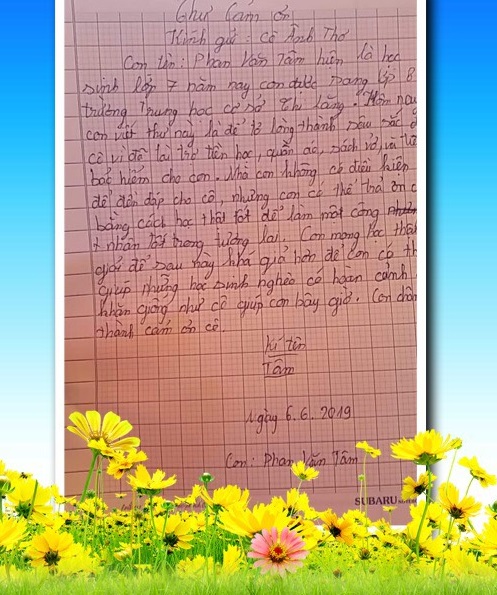 Thư Cảm ơn
Kính gửi : Cô Ánh Thơ
Con tên : Phan Văn Tâm hiện là học
sinh lớp 7 năm nay con được sang lớp 8
trường trung học cơ sở Thi lăng. Hôm nay
con viết thư này là để tỏ lòng thành sâu sắc
cô vì đã tài trợ tiền học, quần áo, sách vở, và
bảo hiểm cho con. Nhà con không có điều kiện
để đền đáp cho cô, nhưng con có thể trả ơn
bằng cách học thật tốt để làm một công
nhân tốt trong tương lai. Con mong học thật
giỏi để sau này khá giả hơn để con có
giúp những học sinh nghèo có hoàn cảnh
khăn giống như cô giúp con bây giờ. Con
thành cảm ơn cô.
Kí tên
Tâm
Ngày 6.6.2019
Con : Phan Văn Tâm
SUBARU